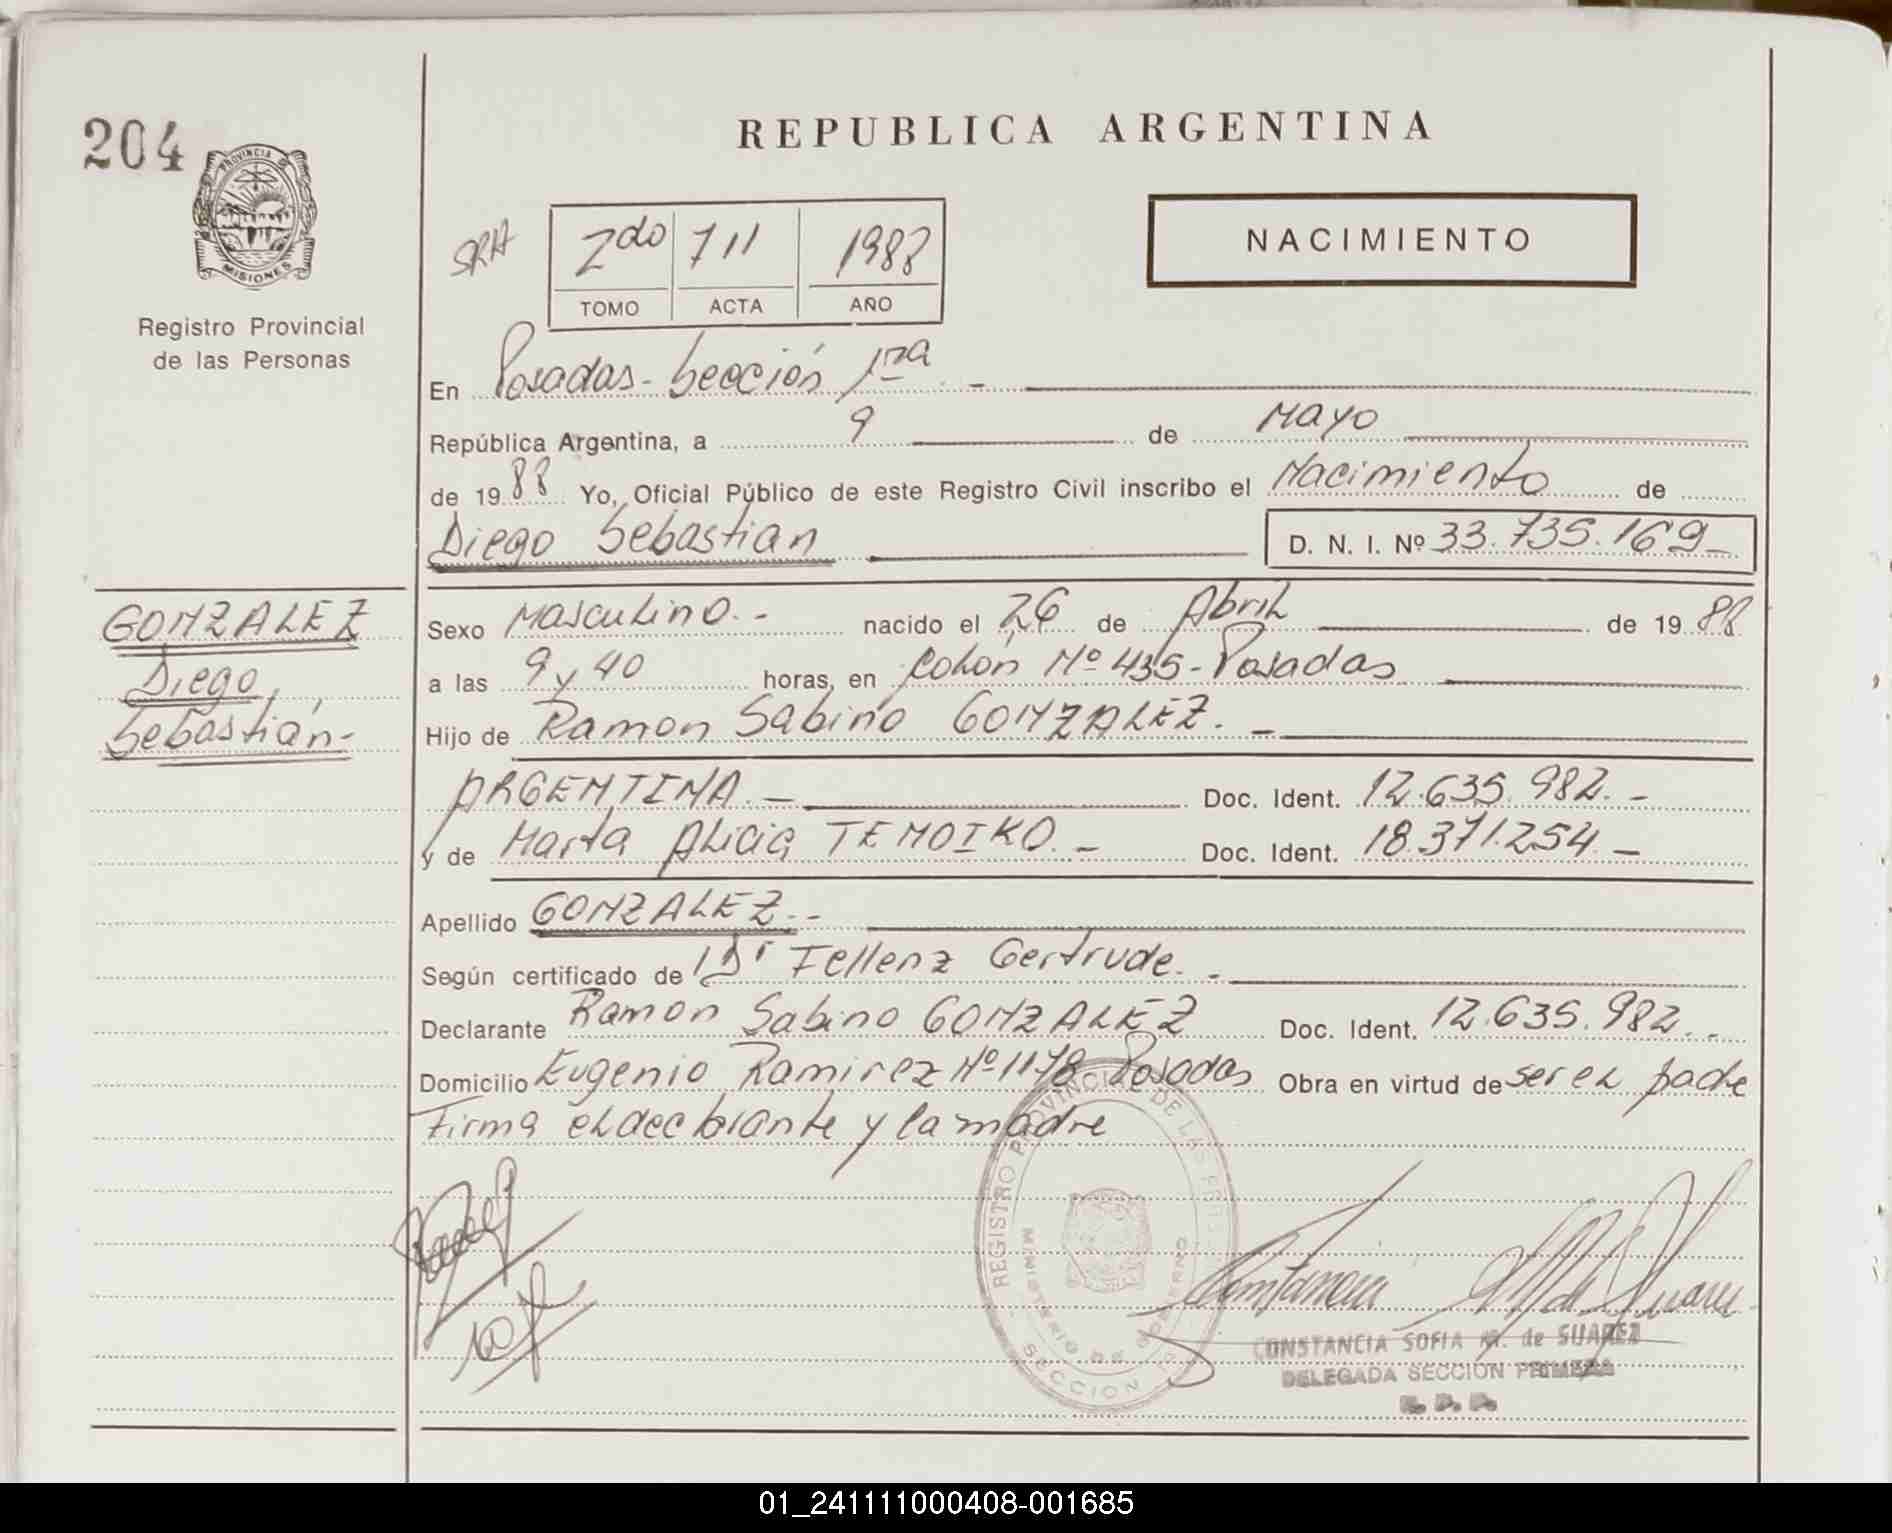 204
PROVINCIA DE
MISIONES
Registro Provincial
de las Personas
REPUBLICA ARGENTINA
2do 711 1988
TOMO ACTA AÑO
NACIMIENTO
En Posadas - Sección 1ra. -
República Argentina, a 9 de Mayo
de 1988 Yo, Oficial Público de este Registro Civil inscribo el Nacimiento de
Diego Sebastian
D. N. I. Nº 33.735.169 -
GONZALEZ
Diego,
Sebastián -
Sexo Masculino. - nacido el 26 de Abril de 1988
a las 9 y 40 horas, en Colón Nº 435 - Posadas
Hijo de Ramon Sabino GONZALEZ. -
ARGENTINA. - Doc. Ident. 12.635.982. -
y de Marta Alicia TEMOIKO. - Doc. Ident. 18.371.254. -
Apellido GONZALEZ. -
Según certificado de Dr Fellenz Gertrude. -
Declarante Ramon Sabino GONZALEZ Doc. Ident. 12.635.982. -
Domicilio Eugenio Ramirez Nº 1178 Posadas Obra en virtud de ser el padre
Firma el declarante y la madre
REGISTRO PROVINCIAL DE LAS
MINISTERIO DE GOBIERNO
SECCION
CONSTANCIA SOFIA M. de SUAREZ
DELEGADA SECCIÓN PRIMERA
01_241111000408-001685